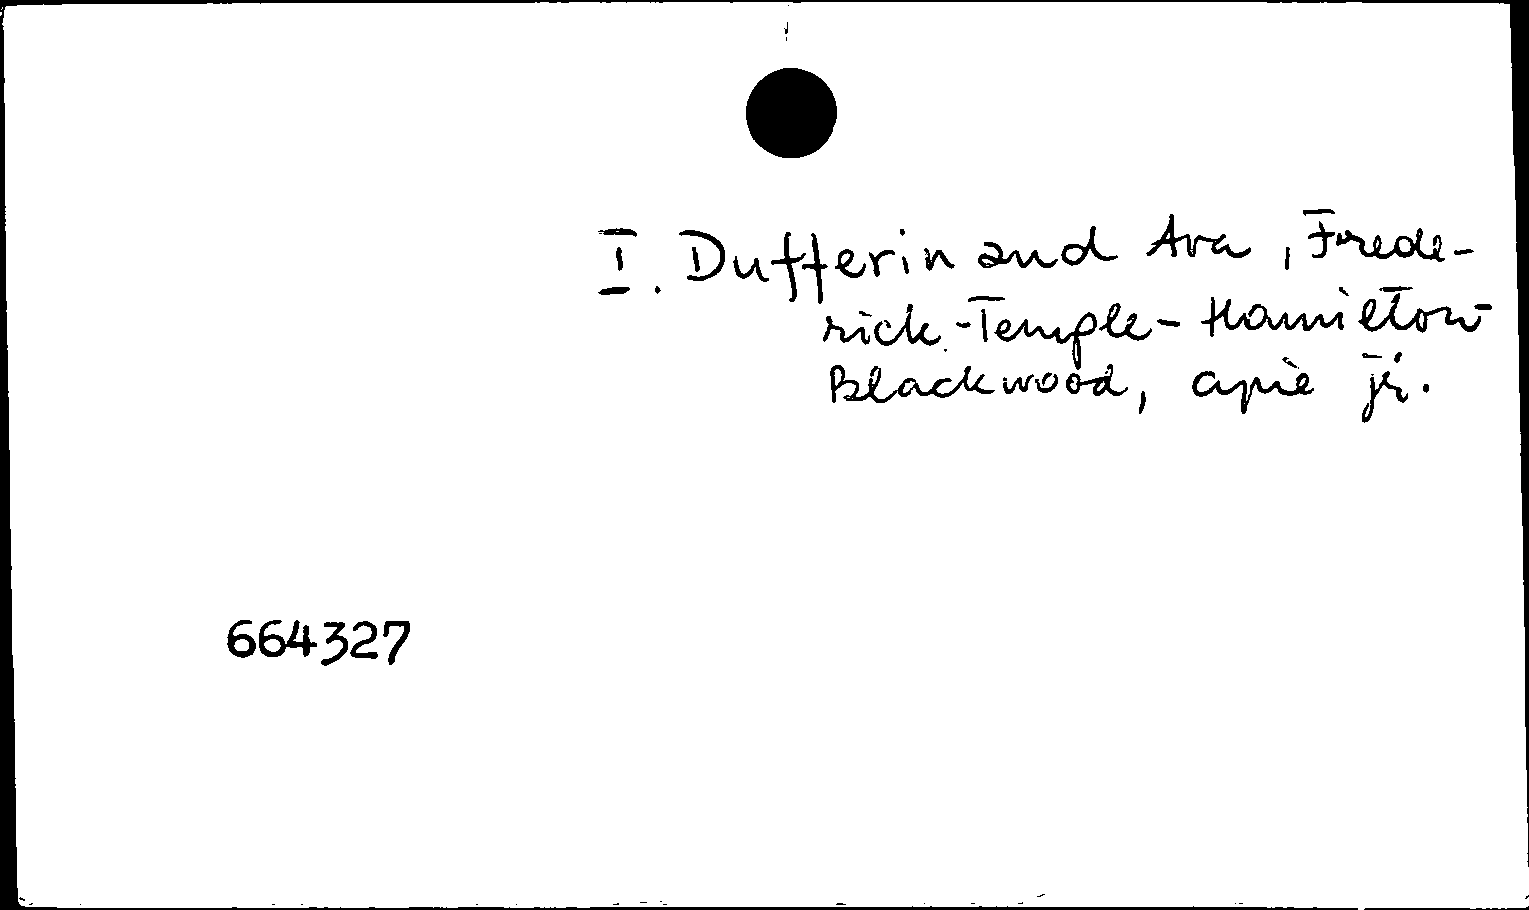 I. Dufferin and Ava, Frede-
rick-Temple-Hamilton-
Blackwood, apie jį.
664327